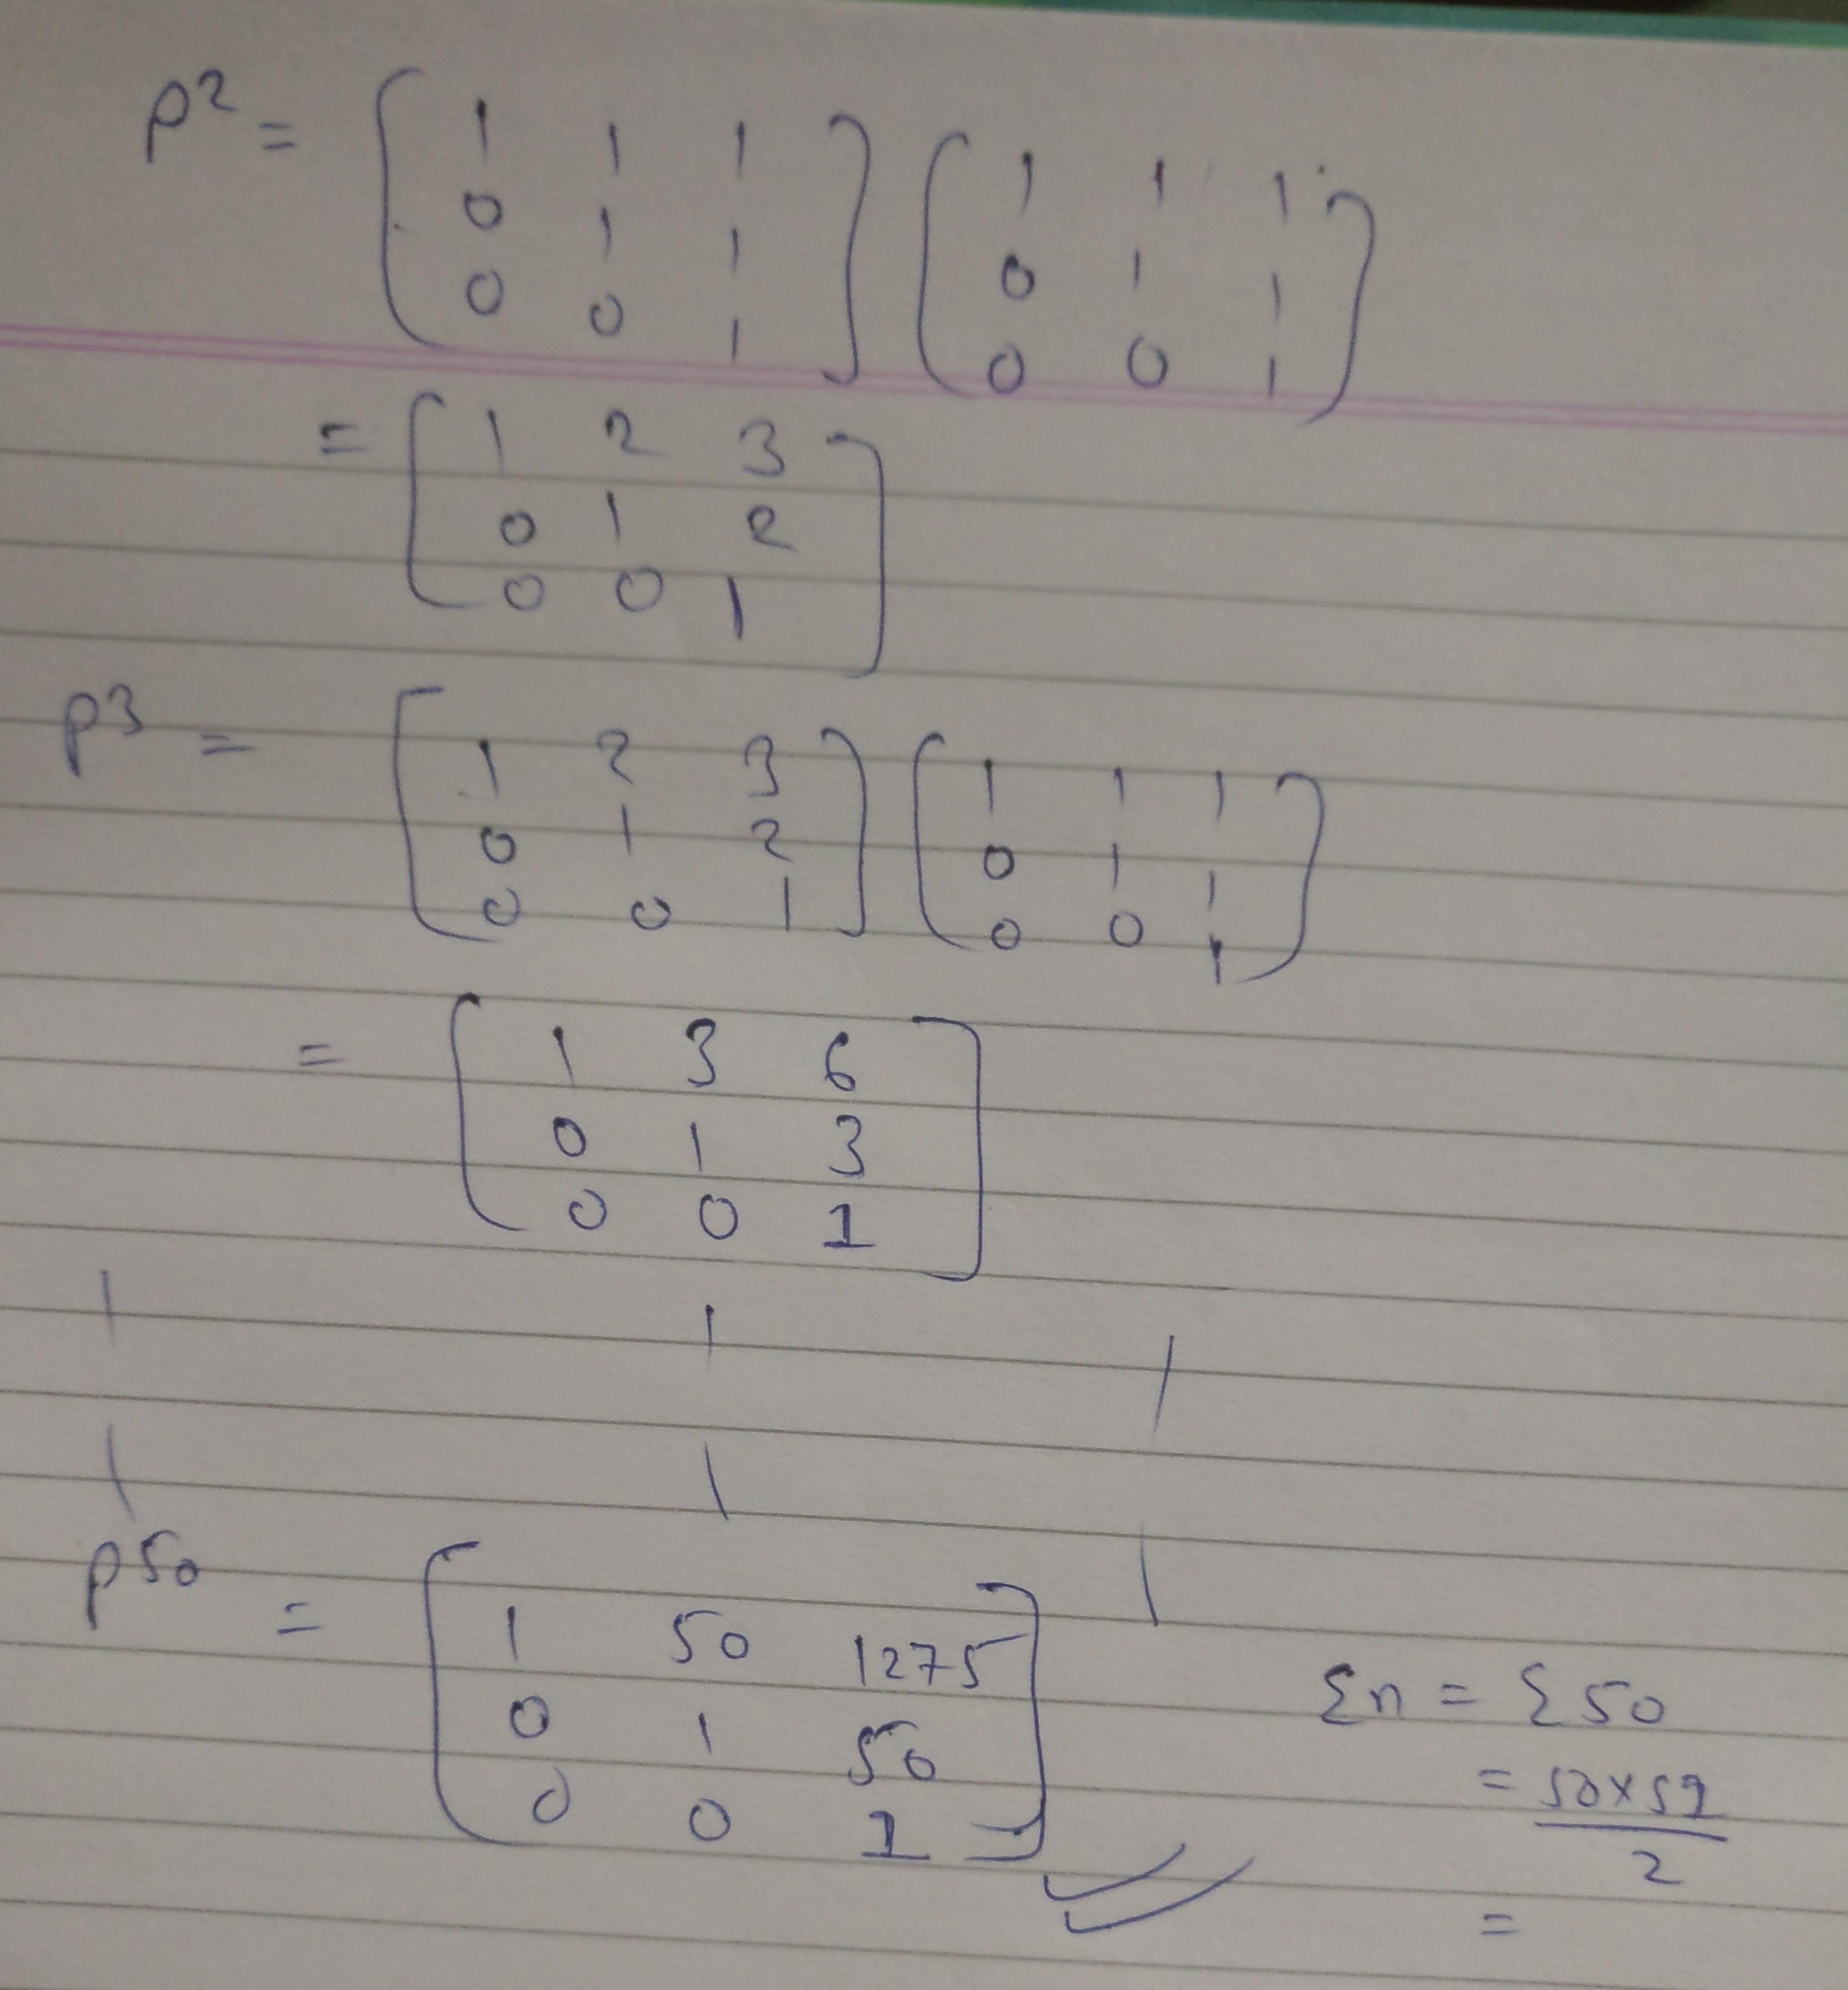 P² = [ 1 1 1 ] [ 1 1 1 ]
0 1 1 0 1 1
0 0 1 0 0 1
= [ 1 2 3 ]
0 1 2
0 0 1
P³ = [ 1 2 3 ] [ 1 1 1 ]
0 1 2 0 1 1
0 0 1 0 0 1
= [ 1 3 6 ]
0 1 3
0 0 1
| | |
| | |
P⁵⁰ = [ 1 50 1275 ]
0 1 50
0 0 1
Σn = Σ50
= 50×51
2
=